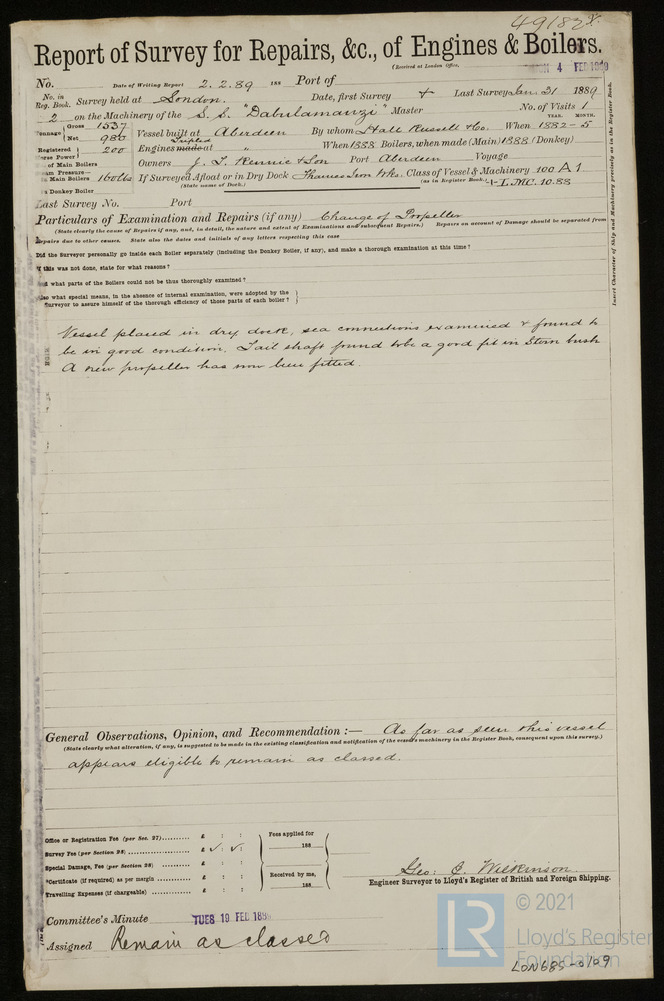 49187
Report of Survey for Repairs, &c., of Engines & Boilers.
(Received at London Office, 4 FEB 1889
No. Date of Writing Report 2.2.89 188 Port of
No. in Reg. Book. Survey held at London. Date, first Survey Last Survey Jan. 31 1889
2 on the Machinery of the S.S. "Dabulamanzi" Master No. of Visits 1
Tonnage Gross 1537 Net 980 Vessel built at Aberdeen By whom Hall Russell & Co. When 1882-5
YEAR. MONTH.
Registered Horse Power 200 Engines made at Tripled " When 1888 Boilers, when made (Main) 1888 (Donkey)
of Main Boilers Owners J. T. Rennie & Son Port Aberdeen Voyage
Steam Pressure in Main Boilers 160 lbs If Surveyed Afloat or in Dry Dock Thames Iron Wks. Class of Vessel & Machinery 100 A1
in Donkey Boiler (State name of Dock.) (as in Register Book.) + L.M.C. 10.88
Last Survey No. Port
Particulars of Examination and Repairs (if any) Change of Propeller
(State clearly the cause of Repairs if any, and, in detail, the nature and extent of Examinations and subsequent Repairs.) Repairs on account of Damage should be separated from
Repairs due to other causes. State also the dates and initials of any letters respecting this case
Did the Surveyor personally go inside each Boiler separately (including the Donkey Boiler, if any), and make a thorough examination at this time?
If this was not done, state for what reasons?
And what parts of the Boilers could not be thus thoroughly examined?
Also what special means, in the absence of internal examination, were adopted by the
Surveyor to assure himself of the thorough efficiency of those parts of each boiler?
Insert Character of Ship and Machinery precisely as in the Register Book.
Vessel placed in dry dock, sea connections examined & found to
be in good condition. Tail shaft found to be a good fit in Stern bush
A new propeller has now been fitted.
General Observations, Opinion, and Recommendation :— As far as seen this vessel
(State clearly what alteration, if any, is suggested to be made in the existing classification and notification of the vessel's machinery in the Register Book, consequent upon this survey.)
appears eligible to remain as classed.
Office or Registration Fee (per Sec. 27) £ : :
Survey Fee (per Section 28) £ : :
Special Damage, Fee (per Section 28) £ : :
*Certificate (if required) as per margin £ : :
Travelling Expenses (if chargeable) £ : :
Fees applied for
188
Received by me,
188
Geo: C. Wilkinson.
Engineer Surveyor to Lloyd's Register of British and Foreign Shipping.
Committee's Minute TUES 19 FEB 188
Assigned Remain as classed
LR © 2021
Lloyd's Register
Foundation
LON685-0109